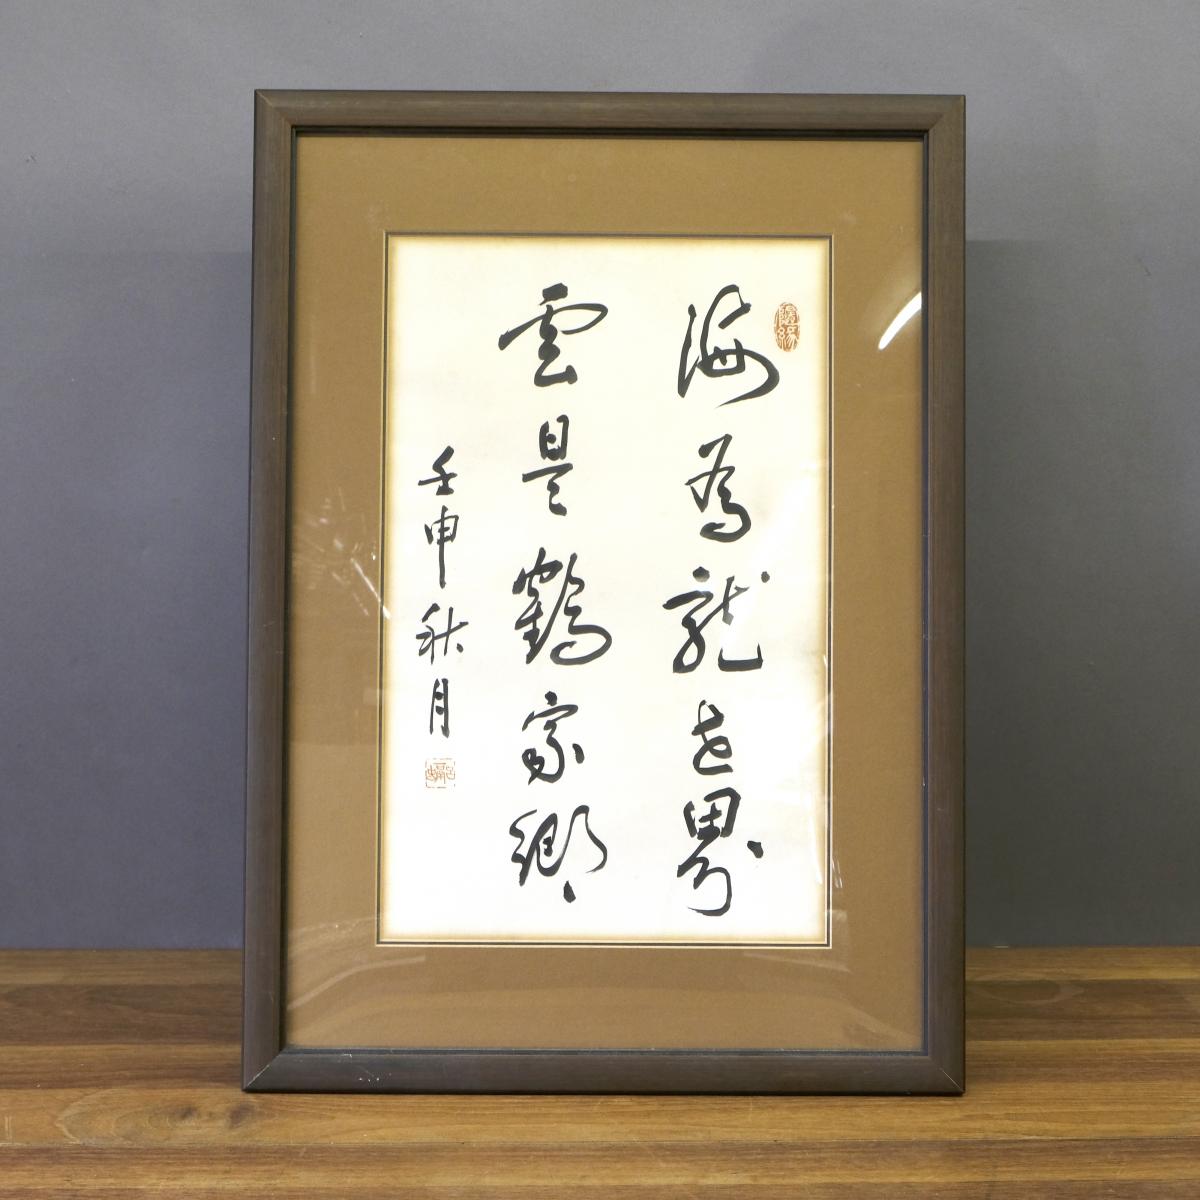 隨緣
海為龍世界
雲是鶴家鄉
壬申秋月